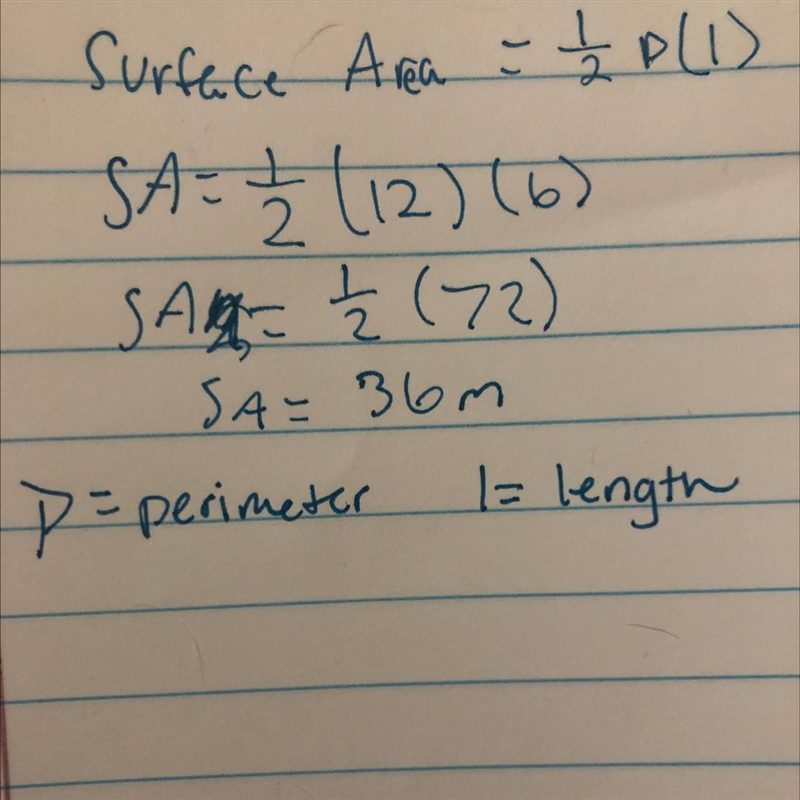 Surface Area = 1/2 p(l)
SA = 1/2 (12) (6)
SA = 1/2 (72)
SA = 36m
P = perimeter l = length